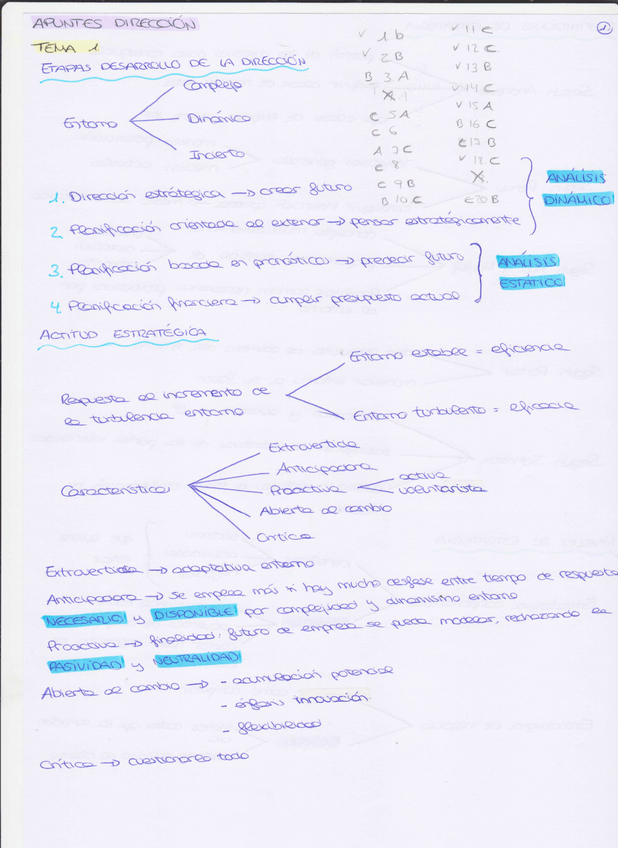 APUNTES DIRECCIÓN
1
TEMA 1
ETAPAS DESARROLLO DE LA DIRECCIÓN
V 1 b
V 2 B
B 3 A
C 5 A
C 6
A 7 C
C 8
C 9 B
B 10 C
V 11 C
V 12 C
V 13 B
V 14 C
V 15 A
B 16 C
C 17 B
V 18 C
C 20 B
Entorno
Complejo
Dinámico
Incierto
1. Dirección estratégica → crear futuro
2. Planificación orientada al exterior → pensar estratégicamente
ANÁLISIS
DINÁMICO
3. Planificación basada en pronóticos → predecir futuro
4. Planificación financiera → cumplir presupuesto actual
ANÁLISIS
ESTÁTICO
ACTITUD ESTRATÉGICA
Respuesta al incremento de
la turbulencia entorno
Entorno estable = eficiencia
Entorno turbulento = eficacia
Características
Extrovertida
Anticipadora
Proactiva
activa
voluntarista
Abierta al cambio
Crítica
Extrovertida → adaptativa entorno
Anticipadora → se emplea más si hay mucho desfase entre tiempo de respuesta
NECESARIO y DISPONIBLE por complejidad y dinamismo entorno
Proactiva → finalidad: futuro de empresa se pueda modelar, rechazando la
PASIVIDAD y NEUTRALIDAD
Abierta al cambio → - acumulación potencial
- innovación
- flexibilidad
Crítica → cuestionarlo todo